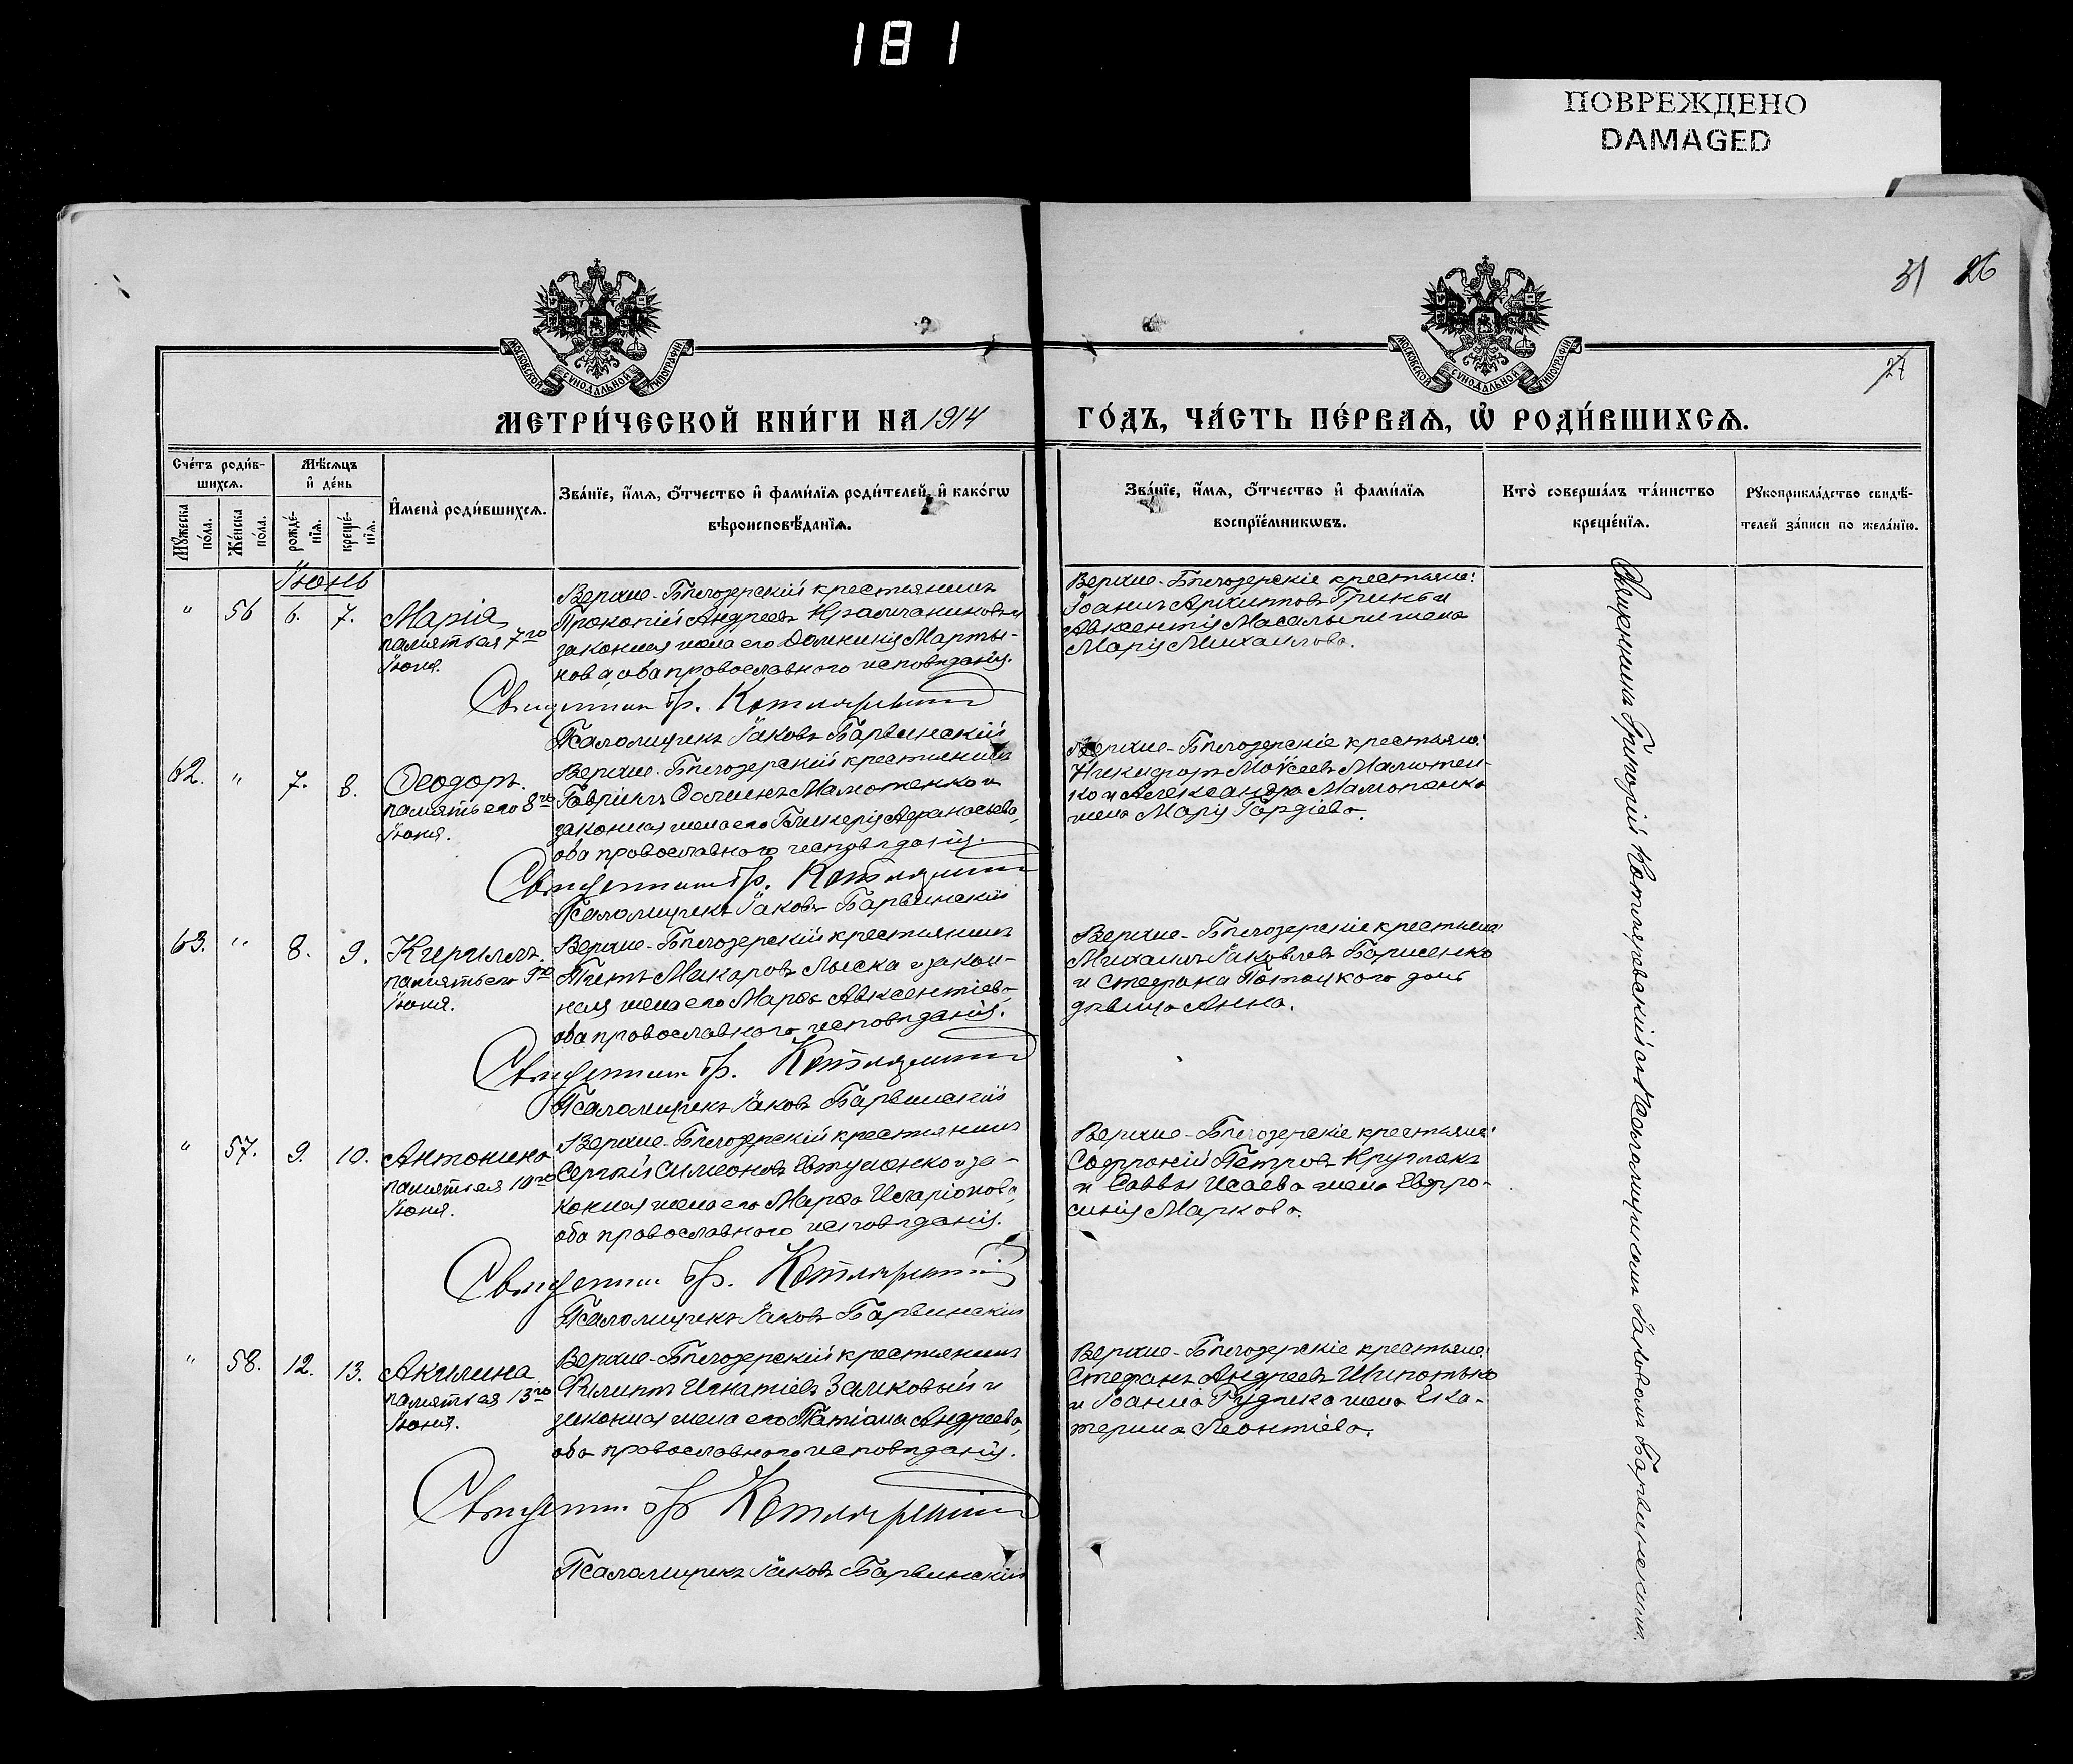 181
ПОВРЕЖДЕНО
DAMAGED
31 26
27
МОСКОВСКОЙ СУНОДАЛЬНОЙ ТИПОГРАФІИ
МОСКОВСКОЙ СУНОДАЛЬНОЙ ТИПОГРАФІИ
МЕТРИ́ЧЕСКОЙ КНИ́ГИ НА 1914
ГО́ДЪ, ЧА́СТЬ ПЕ́РВАѦ, Ѡ҆ РОДИ́ВШИХСѦ.
Сче́тъ роди́в-
шихсѧ.
Мѣ́сѧцъ
и҆ де́нь
Мꙋ́жеска
по́ла.
Же́нска
по́ла.
рожде́-
нїѧ.
креще́-
нїѧ.
И҆мена̀ роди́вшихсѧ.
Зва́нїе, и҆́мѧ, ѻ҆́тчество и҆ фами́лїѧ роди́телей, и҆ како́гѡ
вѣроисповѣ́данїѧ.
Зва́нїе, и҆́мѧ, ѻ҆́тчество и҆ фами́лїѧ
воспрїе́мникѡвъ.
Кто̀ соверша́лъ та́инство
креще́нїѧ.
Рꙋкоприкла́дство свидѣ́-
телей за́писи по жела́нїю.
Іюнь
" 56 6. 7.
Марія
память ея 7го
Іюня.
Верхне-Бѣлозерскій крестьянинъ
Прокопій Андреевъ и
законная жена его Домникія Марты-
нова, оба православнаго исповѣданія.
Священникъ Гр. Котляревскій
Псаломщикъ Іаковъ Барвинскій
Верхне-Бѣлозерскіе крестьяне:
Іоаннъ Архиповъ Гринь и
Авксентія жена
Марія Михаилова.
62. " 7. 8.
Ѳеодоръ.
память его 8го
Іюня.
Верхне-Бѣлозерскій крестьянинъ
Гавріилъ Ѳоминъ Малютенко и
законная жена его Гликерія Аѳанасьева,
оба православнаго исповѣданія.
Священникъ Гр. Котляревскій
Псаломщикъ Іаковъ Барвинскій
Верхне-Бѣлозерскіе крестьяне:
Никифоръ Моѵсеевъ Малютен-
ко и Александра
жена Марія Гордіева.
63. " 8. 9.
Кириллъ.
память его 9го
Іюня.
Верхне-Бѣлозерскій крестьянинъ
Титъ Макаровъ Лыска и закон-
ная жена его Марѳа Авксентіева,
оба православнаго исповѣданія.
Священникъ Гр. Котляревскій
Псаломщикъ Іаковъ Барвинскій
Верхне-Бѣлозерскіе крестьяне:
Михаилъ Іаковлевъ Борисенко
и Стефана Потоцкого дочь
дѣвица Анна.
" 57. 9. 10.
Антонина
память ея 10го
Іюня.
Верхне-Бѣлозерскій крестьянинъ
Сергѣй Симеоновъ Евтушенко и за-
конная жена его Марѳа Иларіонова,
оба православнаго исповѣданія.
Священникъ Гр. Котляревскій
Псаломщикъ Іаковъ Барвинскій
Верхне-Бѣлозерскіе крестьяне:
Софроній Петровъ Круглякъ
и Саввы Исаева жена Евфро-
синія Маркова.
" 58. 12. 13.
Акилина
память ея 13го
Іюня.
Верхне-Бѣлозерскій крестьянинъ
Филиппъ Игнатіевъ Замковый и
законная жена его Татіана Андреева,
оба православнаго исповѣданія.
Священникъ Гр. Котляревскій
Псаломщикъ Іаковъ Барвинскій
Верхне-Бѣлозерскіе крестьяне:
Стефанъ Андреевъ Шипотько
и Іоанна Рудика жена Ека-
терина Леонтіева.
Священникъ Григорій Котляревскій съ Псаломщикомъ Іаковомъ Барвинскимъ.